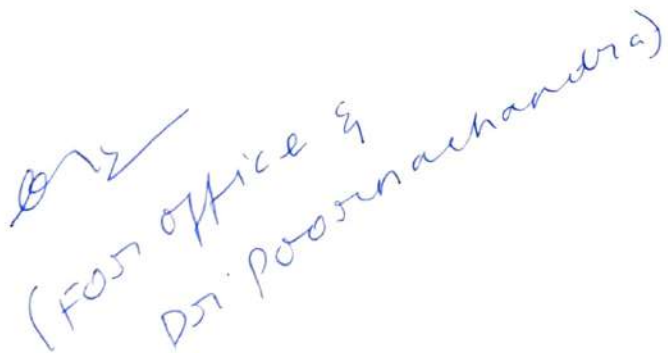 (For office &
Dr. Poornachandra)